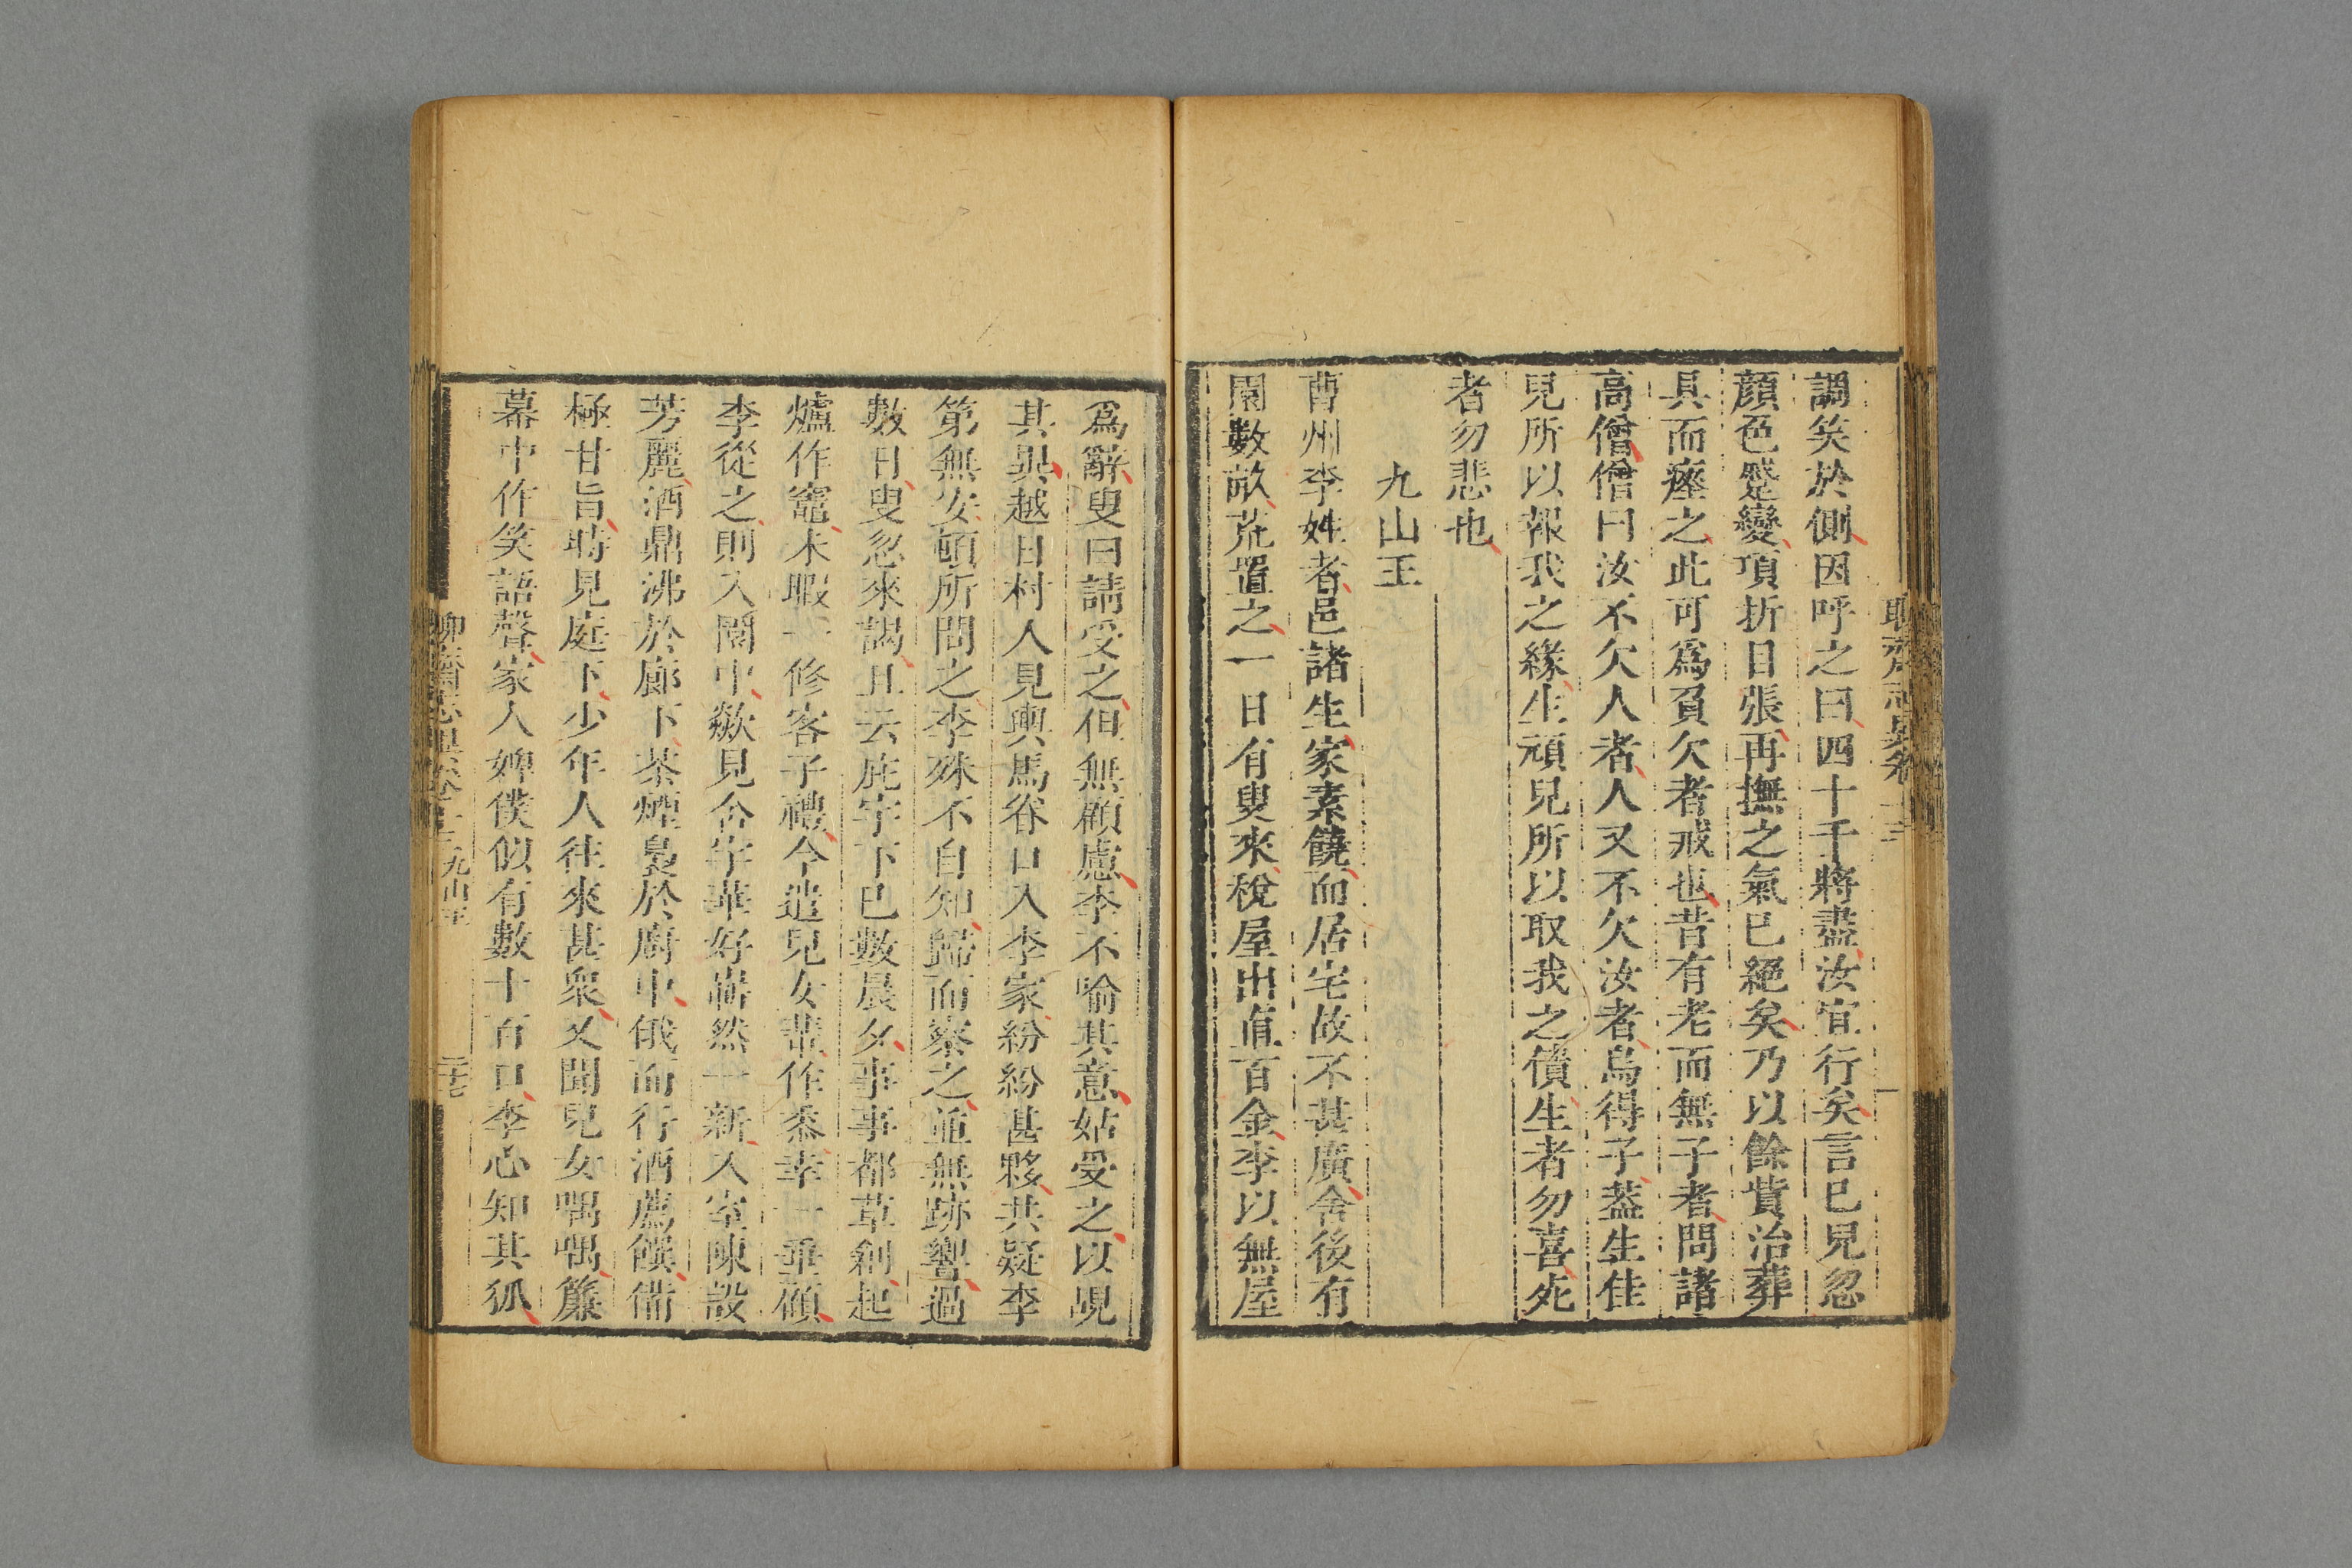 調笑於側因呼之曰四十千將盡汝宜行矣言已兒忽
顏色蹙變項折目張再撫之氣已絕矣乃以餘貲治葬
具而瘞之此可爲負欠者戒也昔有老而無子者問諸
高僧僧曰汝不欠人者人又不欠汝者烏得子蓋生佳
兒所以報我之緣生頑兒所以取我之債生者勿喜死
者勿悲也
九山王
曹州李姓者邑諸生家素饒而居宅故不甚廣舍後有
園數畝荒置之一日有叟來稅屋出直百金李以無屋
爲辭叟曰請受之但無顧慮李不喻其意姑受之以覘
其異越日村人見輿馬眷口入李家紛紛甚夥共疑李
第無安頓所問之李殊不自知歸而察之並無跡響過
數日叟忽來謁且云庇宇下已數晨夕事事都草創起
爐作竈未暇一修客子禮今遣兒女輩作黍幸一垂顧
李從之則入園中歘見舍宇華好嶄然一新入室陳設
芳麗酒鼎沸於廊下茶煙裊於廚中俄而行酒薦饌備
極甘旨時見庭下少年人往來甚衆又聞兒女喁喁簾
幕中作笑語聲家人婢僕似有數十百口李心知其狐
九山王